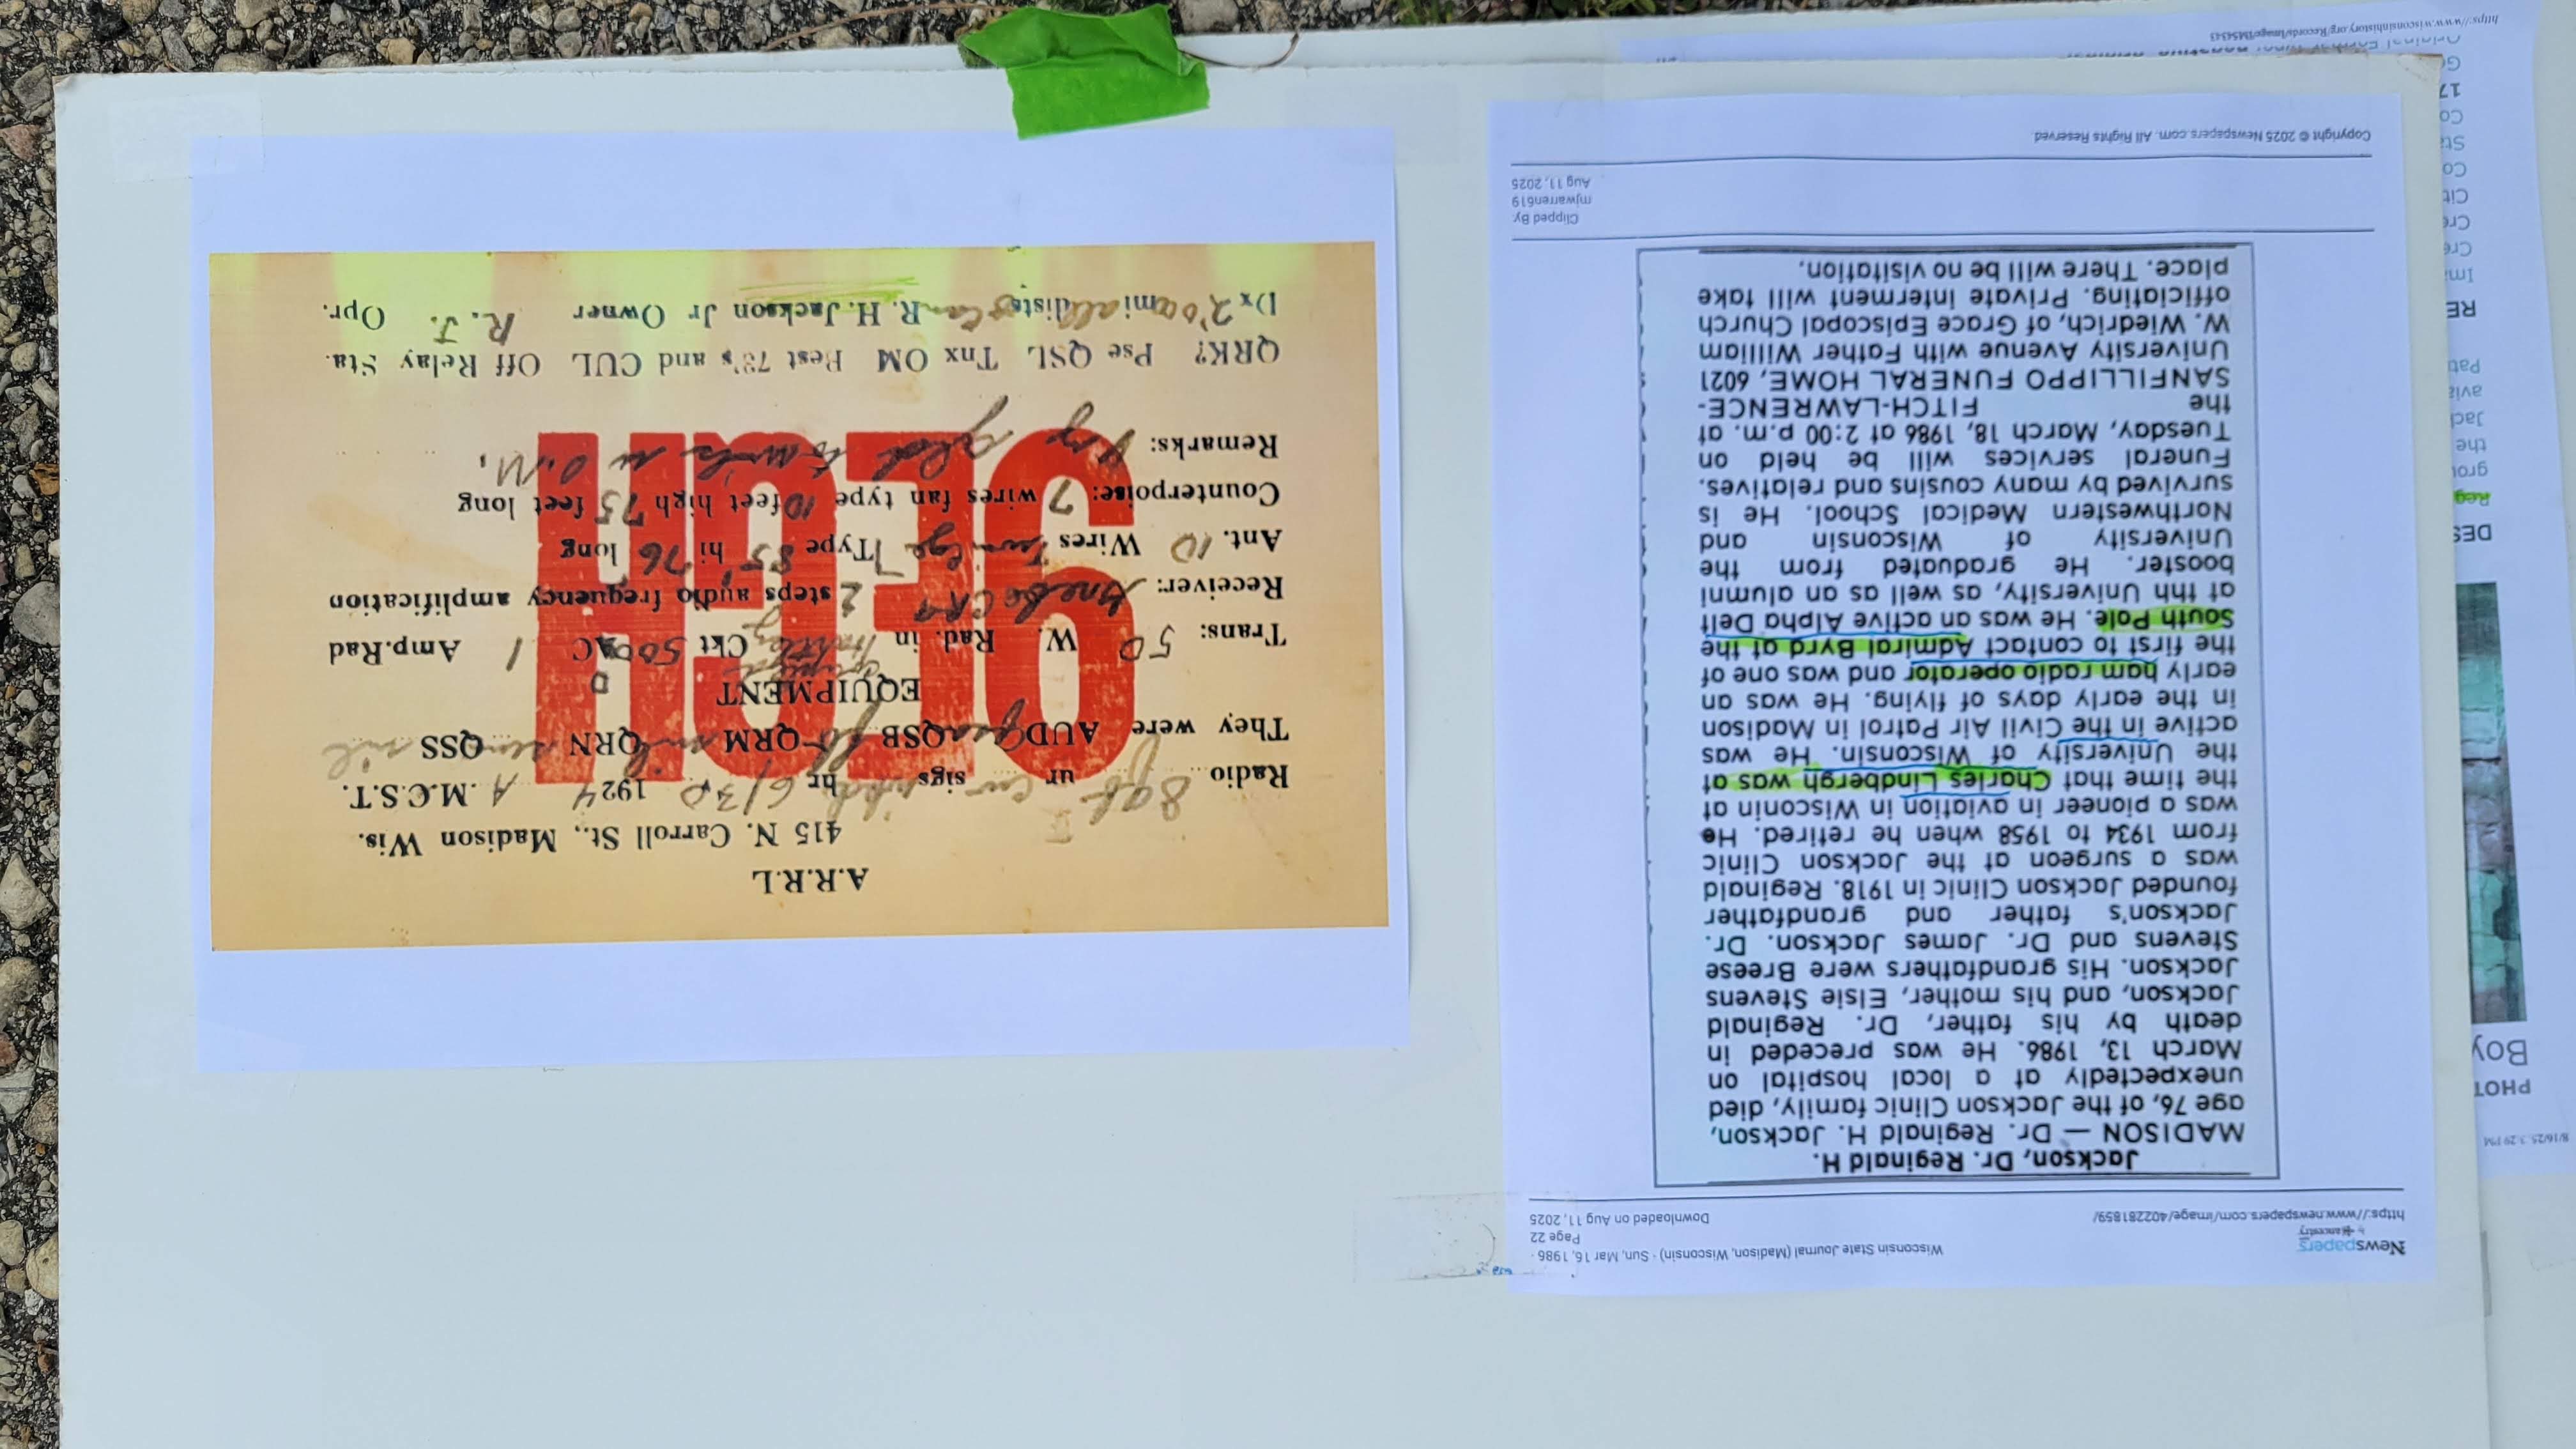 8/16/25, 3:29 PM
PHOT
Boy
DES
Reg
grou
the
Jac
avia
Pat
RE
Im
Cre
Cre
Cit
Co
Sta
Co
17
https://www.wisconsinhistory.org/Records/Image/IM54543
Newspapers
by ancestry
https://www.newspapers.com/image/402281859/
Wisconsin State Journal (Madison, Wisconsin) · Sun, Mar 16, 1986 ·
Page 22
Downloaded on Aug 11, 2025
Jackson, Dr. Reginald H.
MADISON — Dr. Reginald H. Jackson,
age 76, of the Jackson Clinic family, died
unexpectedly at a local hospital on
March 13, 1986. He was preceded in
death by his father, Dr. Reginald
Jackson, and his mother, Elsie Stevens
Jackson. His grandfathers were Breese
Stevens and Dr. James Jackson. Dr.
Jackson's father and grandfather
founded Jackson Clinic in 1918. Reginald
was a surgeon at the Jackson Clinic
from 1934 to 1958 when he retired. He
was a pioneer in aviation in Wisconin at
the time that Charles Lindbergh was at
the University of Wisconsin. He was
active in the Civil Air Patrol in Madison
in the early days of flying. He was an
early ham radio operator and was one of
the first to contact Admiral Byrd at the
South Pole. He was an active Alpha Delt
at thh University, as well as an alumni
booster. He graduated from the
University of Wisconsin and
Northwestern Medical School. He is
survived by many cousins and relatives.
Funeral services will be held on
Tuesday, March 18, 1986 at 2:00 p.m. at
the FITCH-LAWRENCE-
SANFILLIPPO FUNERAL HOME, 6021
University Avenue with Father William
W. Wiedrich, of Grace Episcopal Church
officiating. Private interment will take
place. There will be no visitation.
Clipped By
mjwarren619
Aug 11, 2025
Copyright © 2025 Newspapers.com. All Rights Reserved.
A.R.R.L
415 N. Carroll St., Madison Wis.
Radio ur sigs hr 6/30 1924 A .M.C.S.T.
They were AUD QSB QRM QRN QSS nil
9EGH
EQUIPMENT
Trans: 50 W. Rad. in Ckt 500 AC 1 Amp.Rad
Receiver: 2 steps audio frequency amplification
Ant. 10 Wires Type 85 hi 76 long
Counterpoise: 7 wires fan type 10 feet high 75 feet long
Remarks: glad to u O.M.
QRK? Pse QSL Tnx OM Best 73's and CUL Off Relay Sta.
Dx R. H. Jackson Jr Owner R. J. Opr.